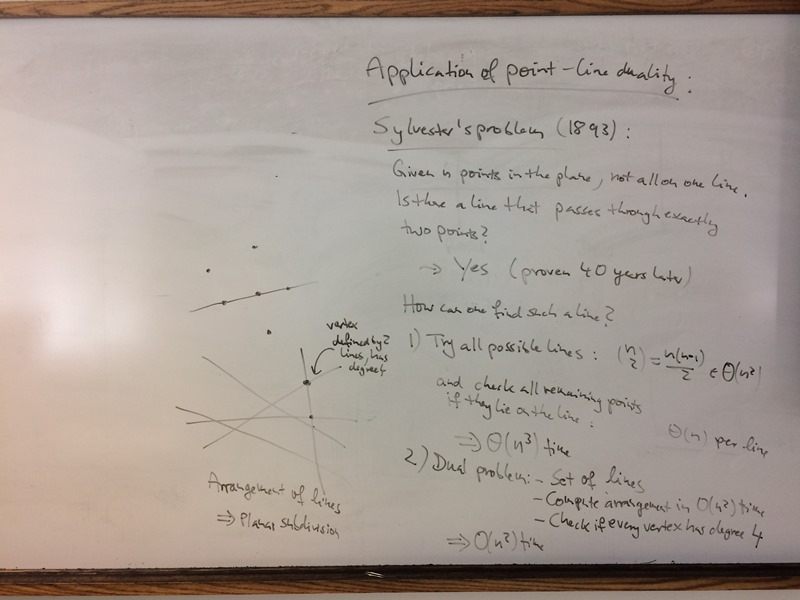 Application of point-line duality:
Sylvester's problem (1893):
Given n points in the plane, not all on one line.
Is there a line that passes through exactly
two points?
→ Yes (proven 40 years later)
How can one find such a line?
1) Try all possible lines: (n 2) = n(n-1)/2 ∈ Θ(n²)
and check all remaining points
if they lie on the line: Θ(n) per line
⇒ Θ(n³) time
2) Dual problem: - Set of lines
- Compute arrangement in O(n²) time
- Check if every vertex has degree 4
⇒ O(n²) time
vertex
defined by 2
lines, has
degree 4
Arrangement of lines
⇒ Planar subdivision